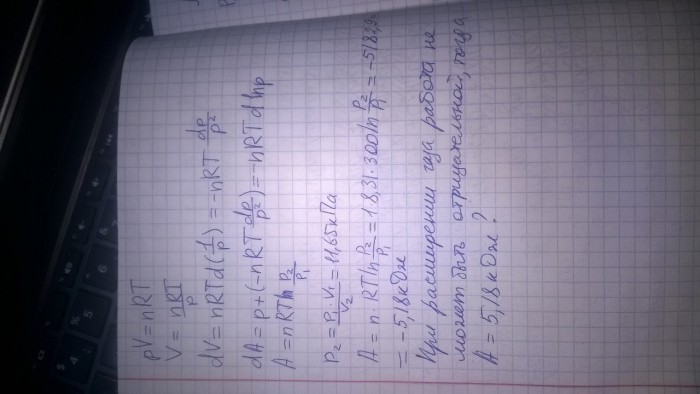 pV = nRT
V = nRT/p
dV = nRTd(1/p) = -nRT dp/p²
dA = p+(-nRT dp/p²) = -nRT d lnp
A = nRT ln P₂/P₁
P₂ = P₁·V₁/V₂ = 11,65кПа
A = n·RT ln P₂/P₁ = 1·8,31·300 ln P₂/P₁ = -5182,9
= -5,18 кДж
При расширении газа работа не
может быть отрицательной, тогда
A = 5,18 кДж?